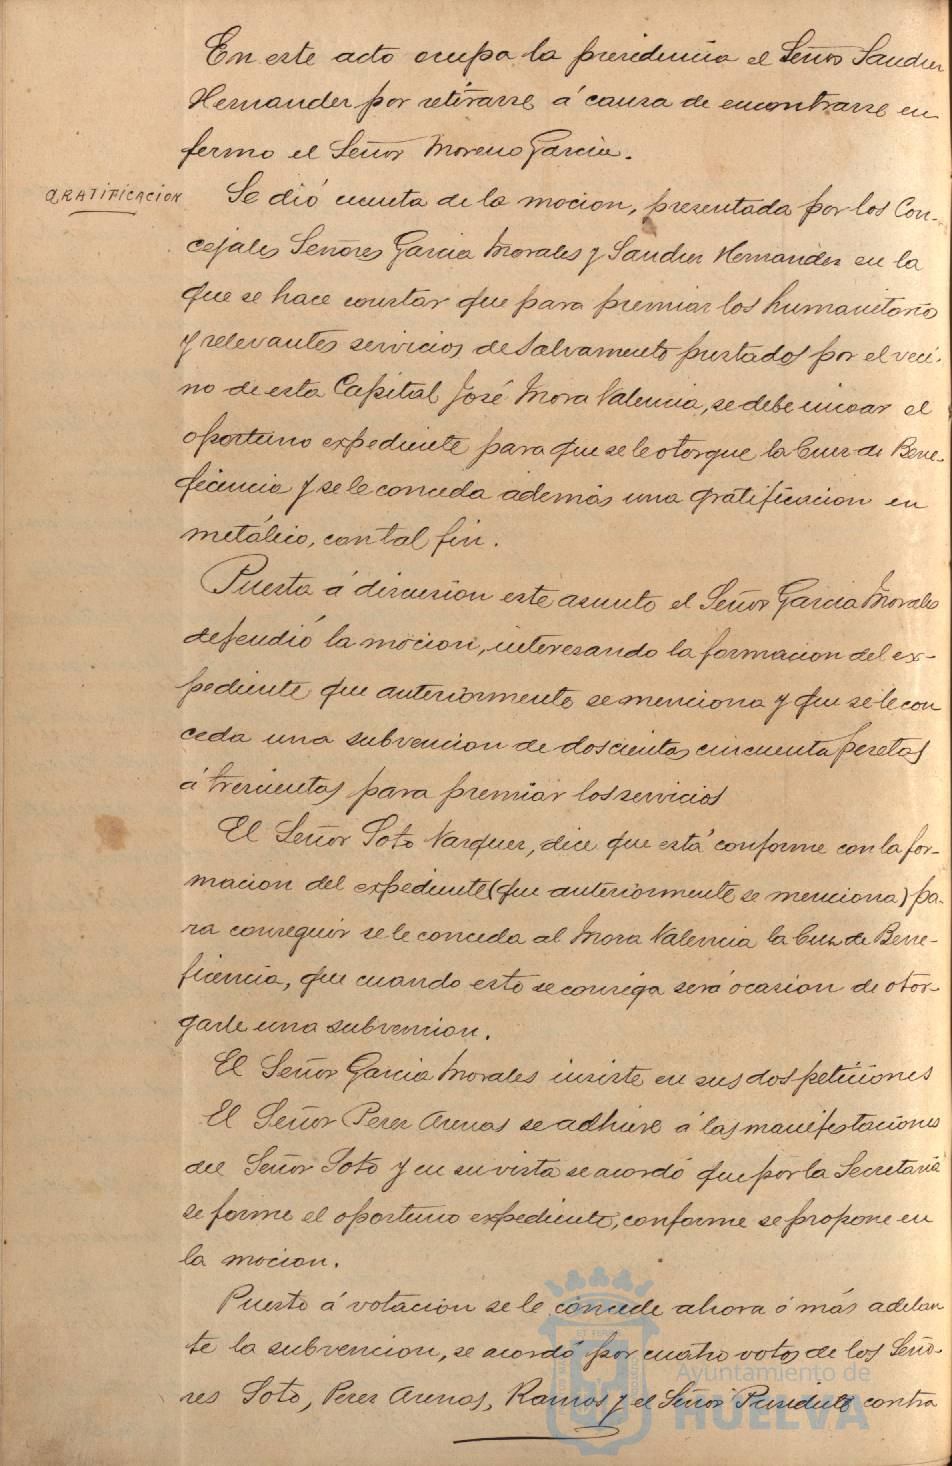 En este acto ocupa la presidencia el Señor Sanchez
Hernandez por retirarse á causa de encontrarse en-
fermo el Señor Moreno Garcia.
GRATIFICACION
Se dió cuenta de la mocion, presentada por los Con-
cejales Señores Garcia Morales y Sanchez Hernandez en la
que se hace constar que para premiar los humanitarios
y relevantes servicios de Salvamento prestados por el veci-
no de esta Capital José Mora Valencia, se debe incoar el
oportuno expediente para que se le otorgue la Cruz de Bene-
ficencia y se le conceda además una gratificacion en
metálico, con tal fin.
Puesta á discusion este asunto el Señor Garcia Morales
defendió la mocion, interesando la formacion del ex-
pediente que anteriormente se menciona y que se le con
ceda una subvencion de doscientas cincuenta pesetas
á trescientas para premiar los servicios
El Señor Soto Vazquez, dice que está conforme con la for-
macion del expediente (que anteriormente se menciona) pa-
ra conseguir se le conceda al Mora Valencia la Cruz de Bene-
ficencia, que cuando esto se consiga será ocasion de otor-
garle una subvencion.
El Señor Garcia Morales insiste en sus dos peticiones
El Señor Perez Arenas se adhiere á las manifestaciones
del Señor Soto y en su vista se acordó que por la Secretaria
se forme el oportuno expediente, conforme se propone en
la mocion.
Puesto á votacion se le concede ahora ó más adelan
te la subvencion, se acordó por cuatro votos de los Seño-
res Soto, Perez Arenas, Ramos y el Señor Presidente contra
Ayuntamiento de
HUELVA